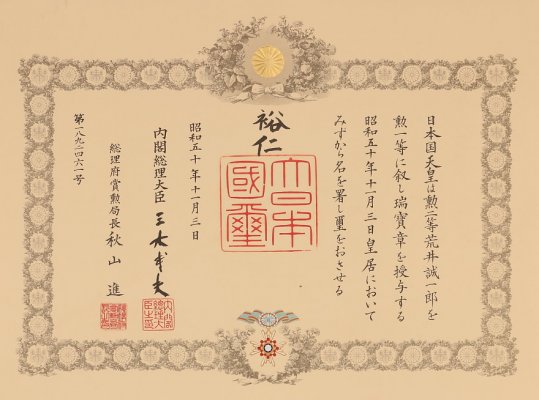 日本国天皇は勲二等荒井誠一郎を
勲一等に叙し瑞寶章を授与する
昭和五十年十一月三日皇居において
みずから名を署し璽をおさせる
裕仁
大日本國璽
昭和五十年十一月三日
内閣総理大臣 三木武夫
内閣総理大臣之印
総理府賞勲局長 秋山 進
第一八九二四六一号